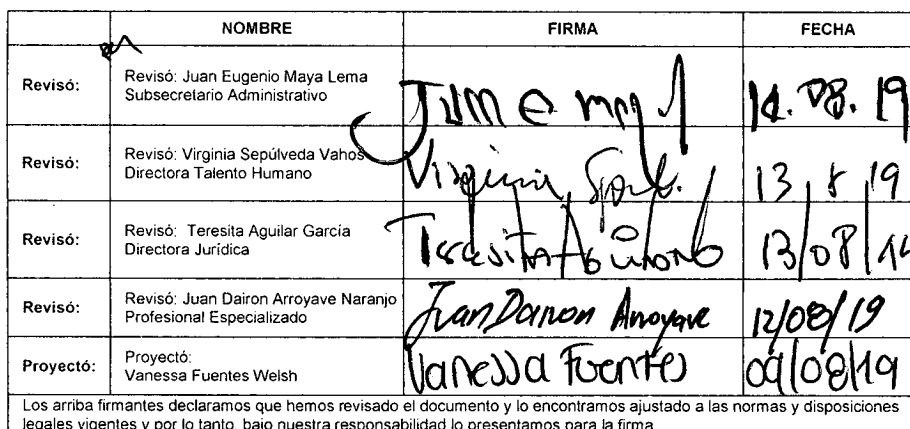 NOMBRE FIRMA FECHA
Revisó: Revisó: Juan Eugenio Maya Lema
Subsecretario Administrativo
14.08.19
Revisó: Revisó: Virginia Sepúlveda Vahos
Directora Talento Humano
Virginia 13/8/19
Revisó: Revisó: Teresita Aguilar García
Directora Jurídica
Teresita 13/08/
Revisó: Revisó: Juan Dairon Arroyave Naranjo
Profesional Especializado
Juan Dairon Arroyave 12/08/19
Proyectó: Proyectó:
Vanessa Fuentes Welsh
Vanessa Fuentes 09/08/19
Los arriba firmantes declaramos que hemos revisado el documento y lo encontramos ajustado a las normas y disposiciones
legales vigentes y por lo tanto, bajo nuestra responsabilidad lo presentamos para la firma